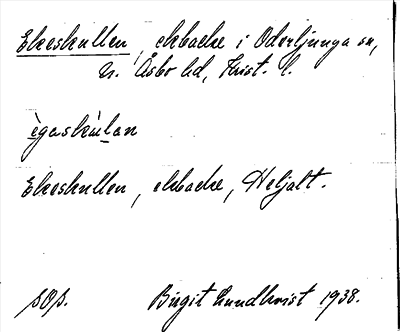 Ekeskullen, ekbacke i Oderljunga sn,
N. Åsbo hd, Krist. l.
ègaskùlan
Ekeskullen, ekbacke, Heljalt.
sOs.
Birgit Lundkvist 1938.